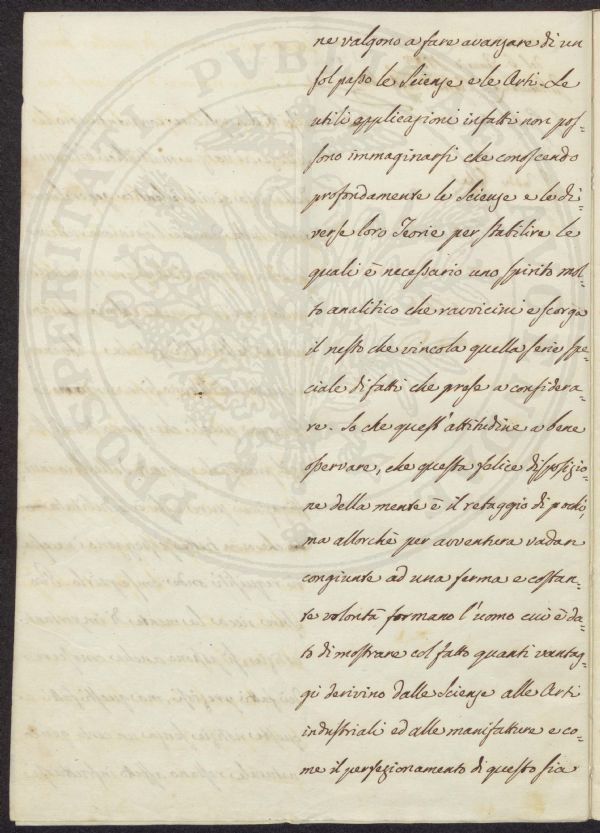 ne valgono a fare avanzare di un
sol passo le Scienze e le Arti. Le
utili applicazioni infatti non pos=
sono immaginarsi che conoscendo
profondamente le Scienze e le di=
verse loro Teorie per stabilire le
quali è necessario uno spirito mol=
to analitico che ravvicini e scorga
il nesto che vincola quella serie spe=
ciale di fatti che prese a considera=
re. So che quest'attitudine a bene
osservare, che questa felice disposizio=
ne della mente è il retaggio di pochi,
ma allorchè per avventura vadan
congiunte ad una ferma e costan=
te volontà formano l'uomo cui è da=
to di mostrare col fatto quanti vantag=
gi derivino dalle Scienze alle Arti
industriali ed alle manifatture e co=
me il perfezionamento di questo sia
PROSPERITATI PUBL